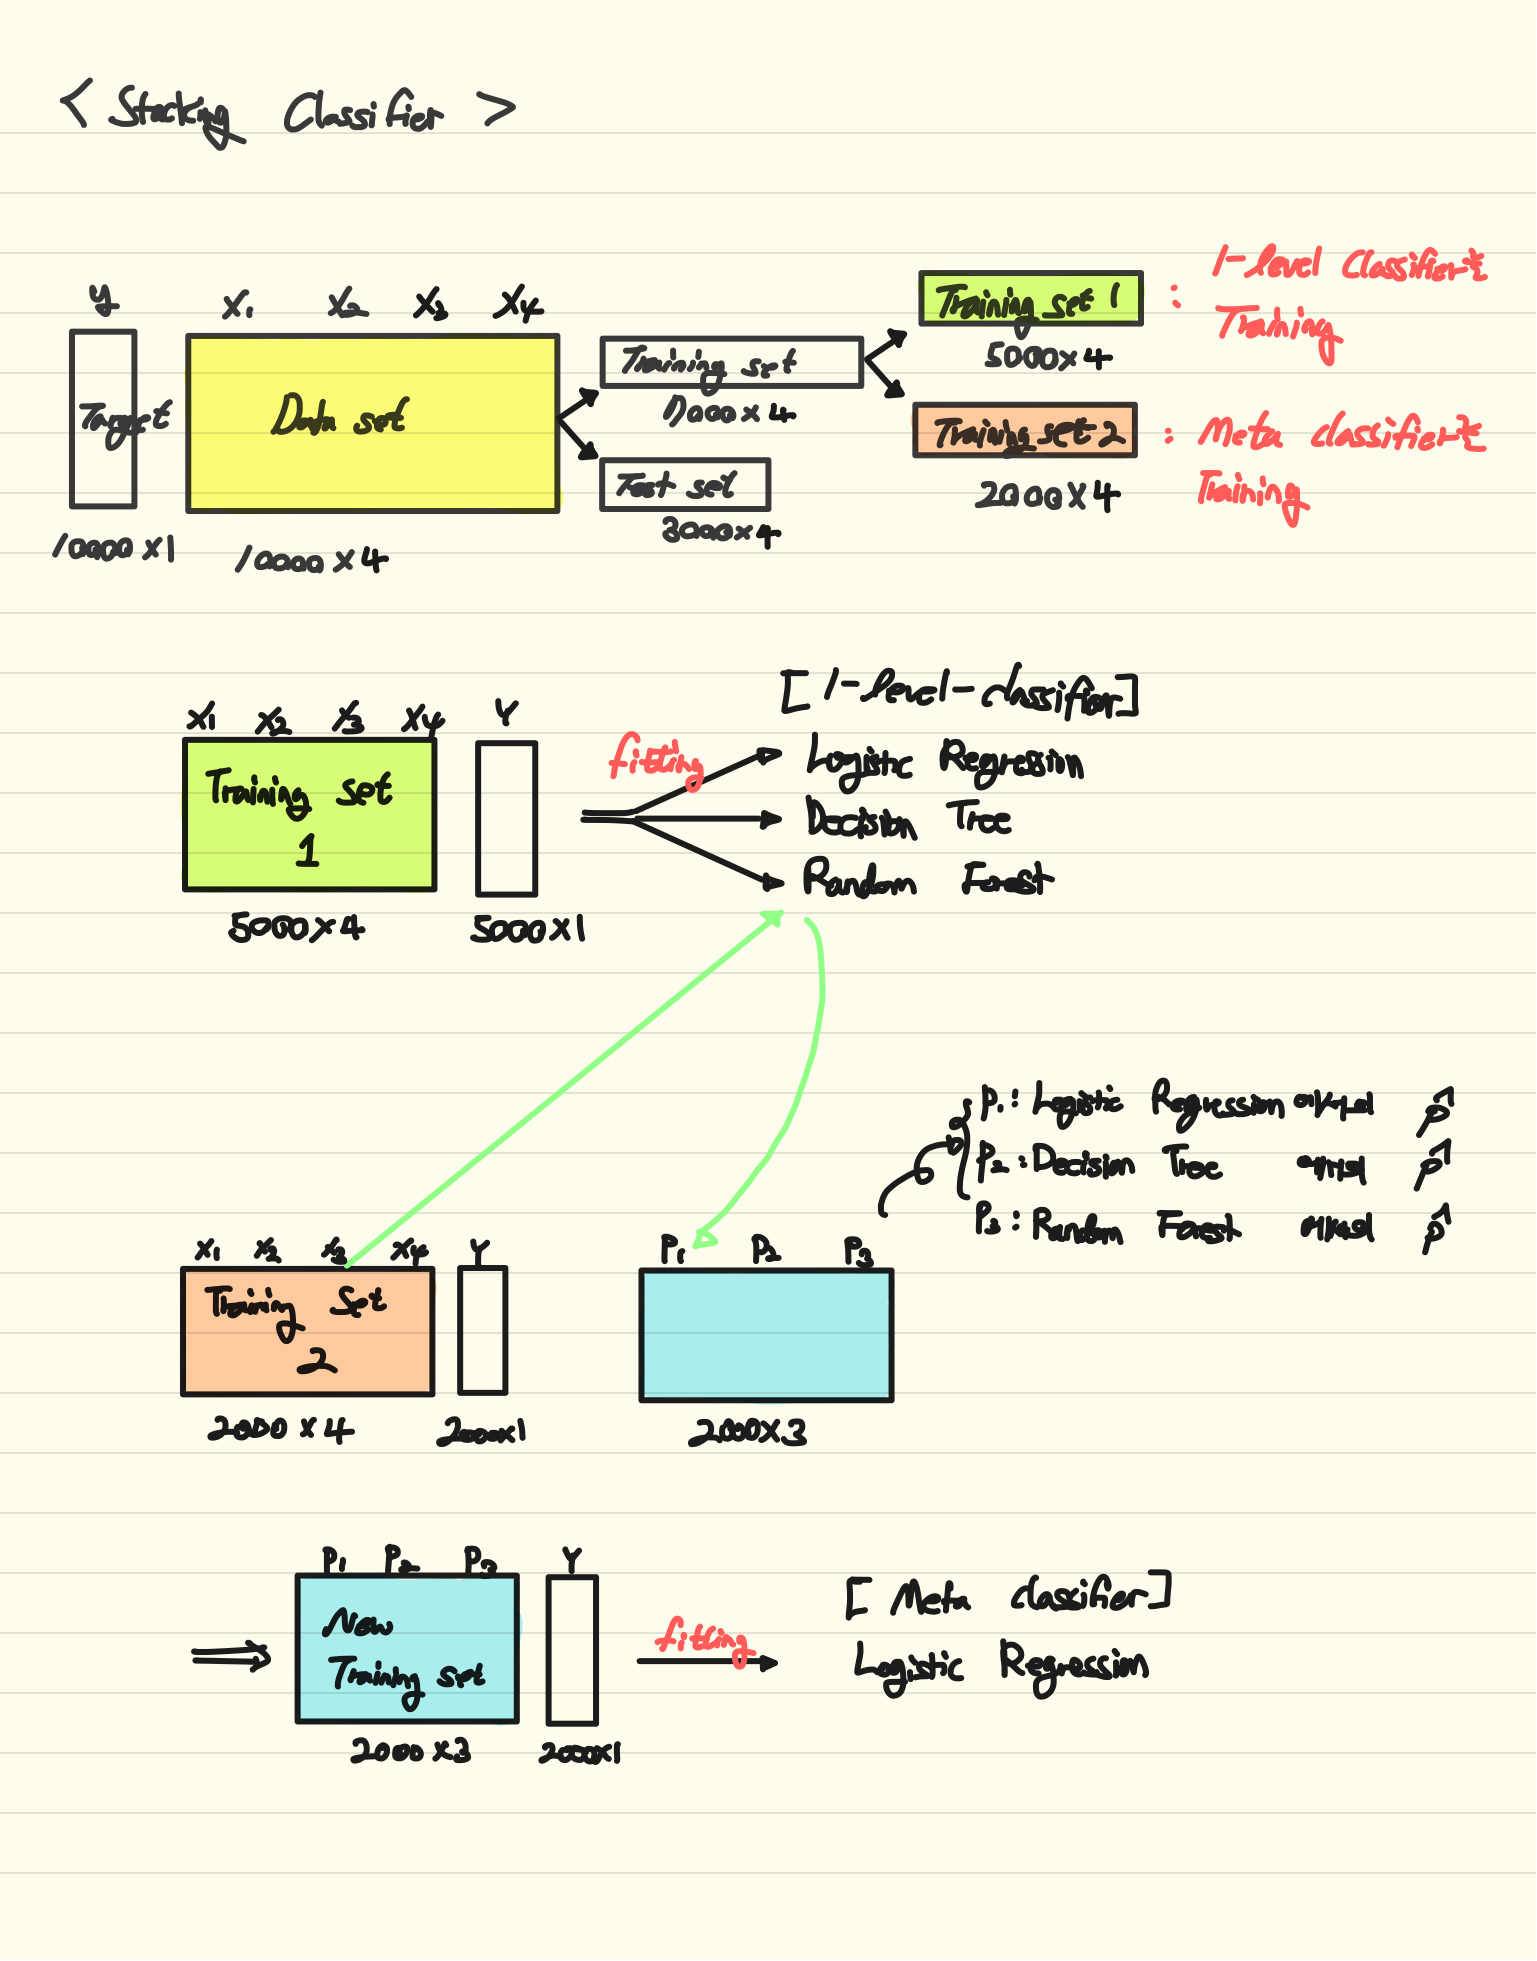 < Stacking Classifier >
y X1 X2 X3 X4
Target
Data set
10000 x 1
10000 x 4
Training set
7000 x 4
Test set
3000 x 4
Training set 1
5000 x 4
: 1-level Classifier를
Training
Training set 2
2000 x 4
: Meta classifier를
Training
X1 X2 X3 X4 Y
Training set
1
5000 x 4
5000 x 1
fitting
[ 1-level-classifier ]
Logistic Regression
Decision Tree
Random Forest
P1 : Logistic Regression
P2 : Decision Tree
P3 : Random Forest
X1 X2 X3 X4 Y
Training Set
2
2000 x 4
2000x1
P1 P2 P3
2000x3
P1 P2 P3 Y
New
Training set
2000 x 3
2000x1
fitting
[ Meta classifier ]
Logistic Regression